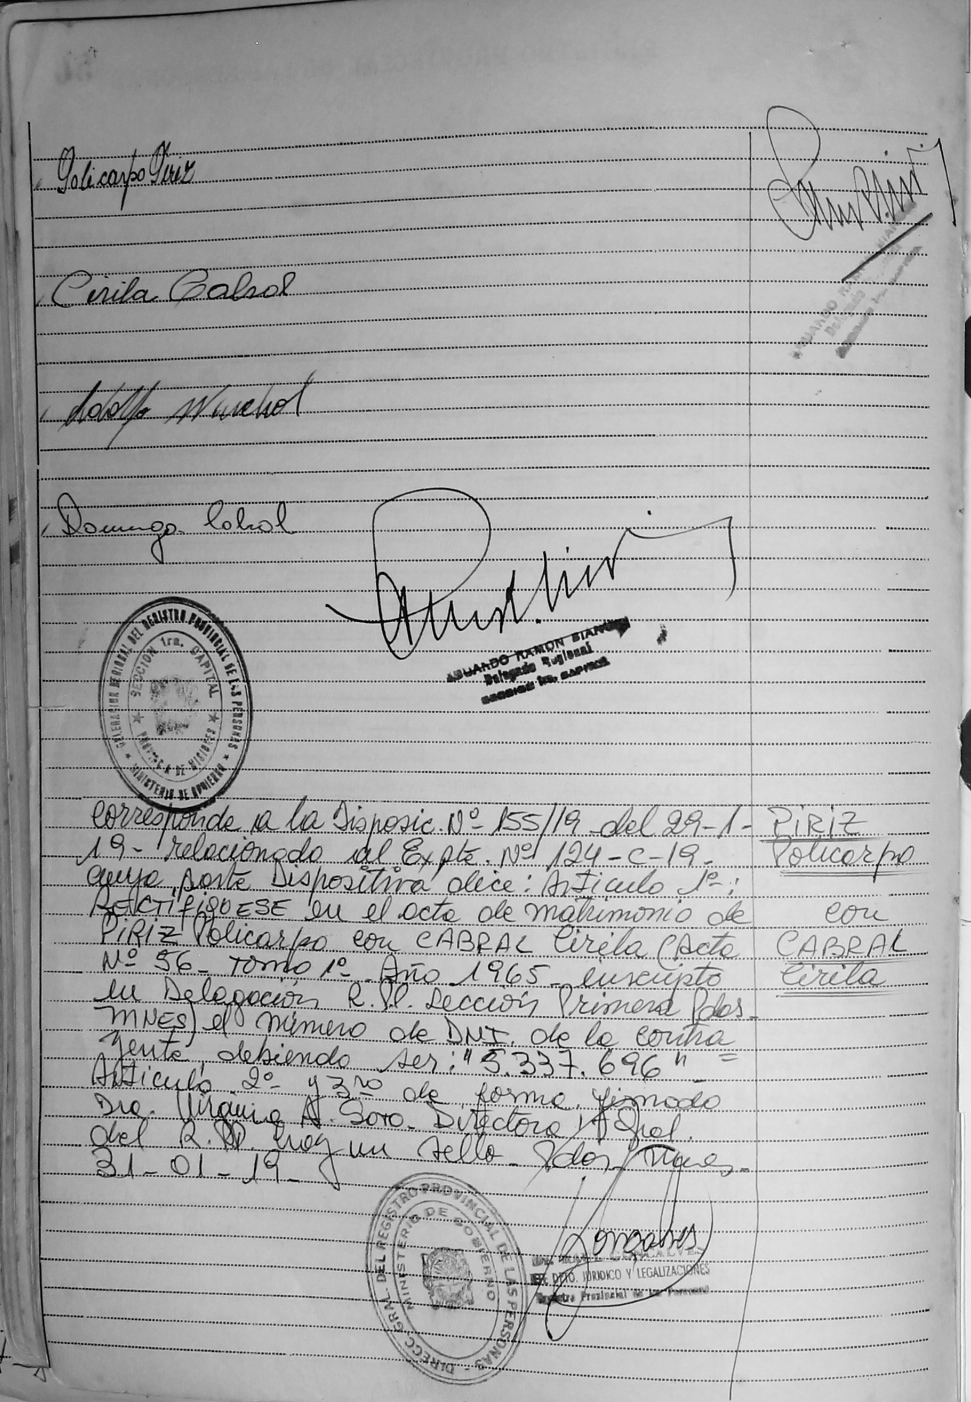 Policarpo Piriz
Cirila Cabral
Adolfo
Domingo Cabral
EDUARDO RAMON BIANCHI
Delegado Regional
SECCION 1ra. CAPITAL
DELEGACION REGIONAL DEL REGISTRO PROVINCIAL DE LAS PERSONAS
SECCION 1ra. CAPITAL
PROVINCIA DE MISIONES
MINISTERIO DE GOBIERNO
Corresponde a la Disposic. Nº 155/19 del 29-1-
19- relacionado al Expte. Nº 124-C-19-
cuya parte Dispositiva dice: Articulo 1º:
RECTIFIQUESE en el acta de matrimonio de
PIRIZ Policarpo con CABRAL Cirila (Acta
Nº 56- Tomo 1º- Año 1965- inscripto
en Delagación R.P. Sección Primera Pdas-
MNES) el número de DNI. de la contra
yente, debiendo ser: "5.337.696" =
Articulo 2º y 3ro de forma. firmado
Dra. Virginia A. Soro- Directora Gral.
del R.P. hay un sello- Pdas, Mnes-
31-01-19-
PIRIZ
Policarpo
con
CABRAL
Cirila
DIRECC. GRAL. DEL REGISTRO PROVINCIAL DE LAS PERSONAS
MINISTERIO DE GOBIERNO
DPTO. JURIDICO Y LEGALIZACIONES
Registro Provincial de las Personas